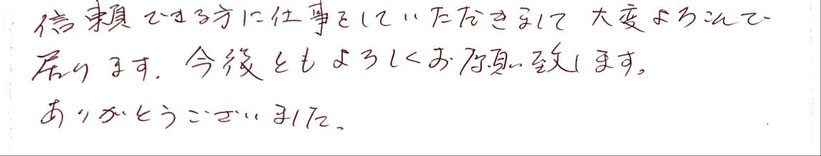 信頼できる方に仕事をしていただきまして 大変よろこんで
居ります。今後ともよろしくお願い致します。
ありがとうございました。